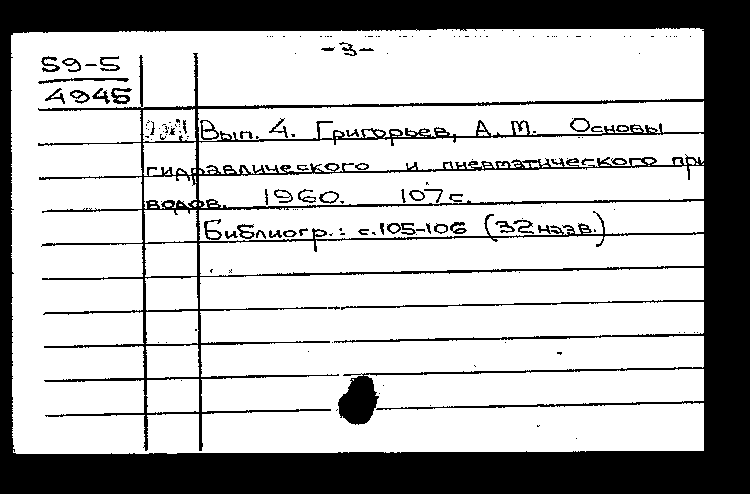 -3-
59-5
4945
Вып. 4. Григорьев, А. М. Основы
гидравлического и пневматического при
водов. 1960. 107 с.
Библиогр.: с. 105-106 (32 назв.)